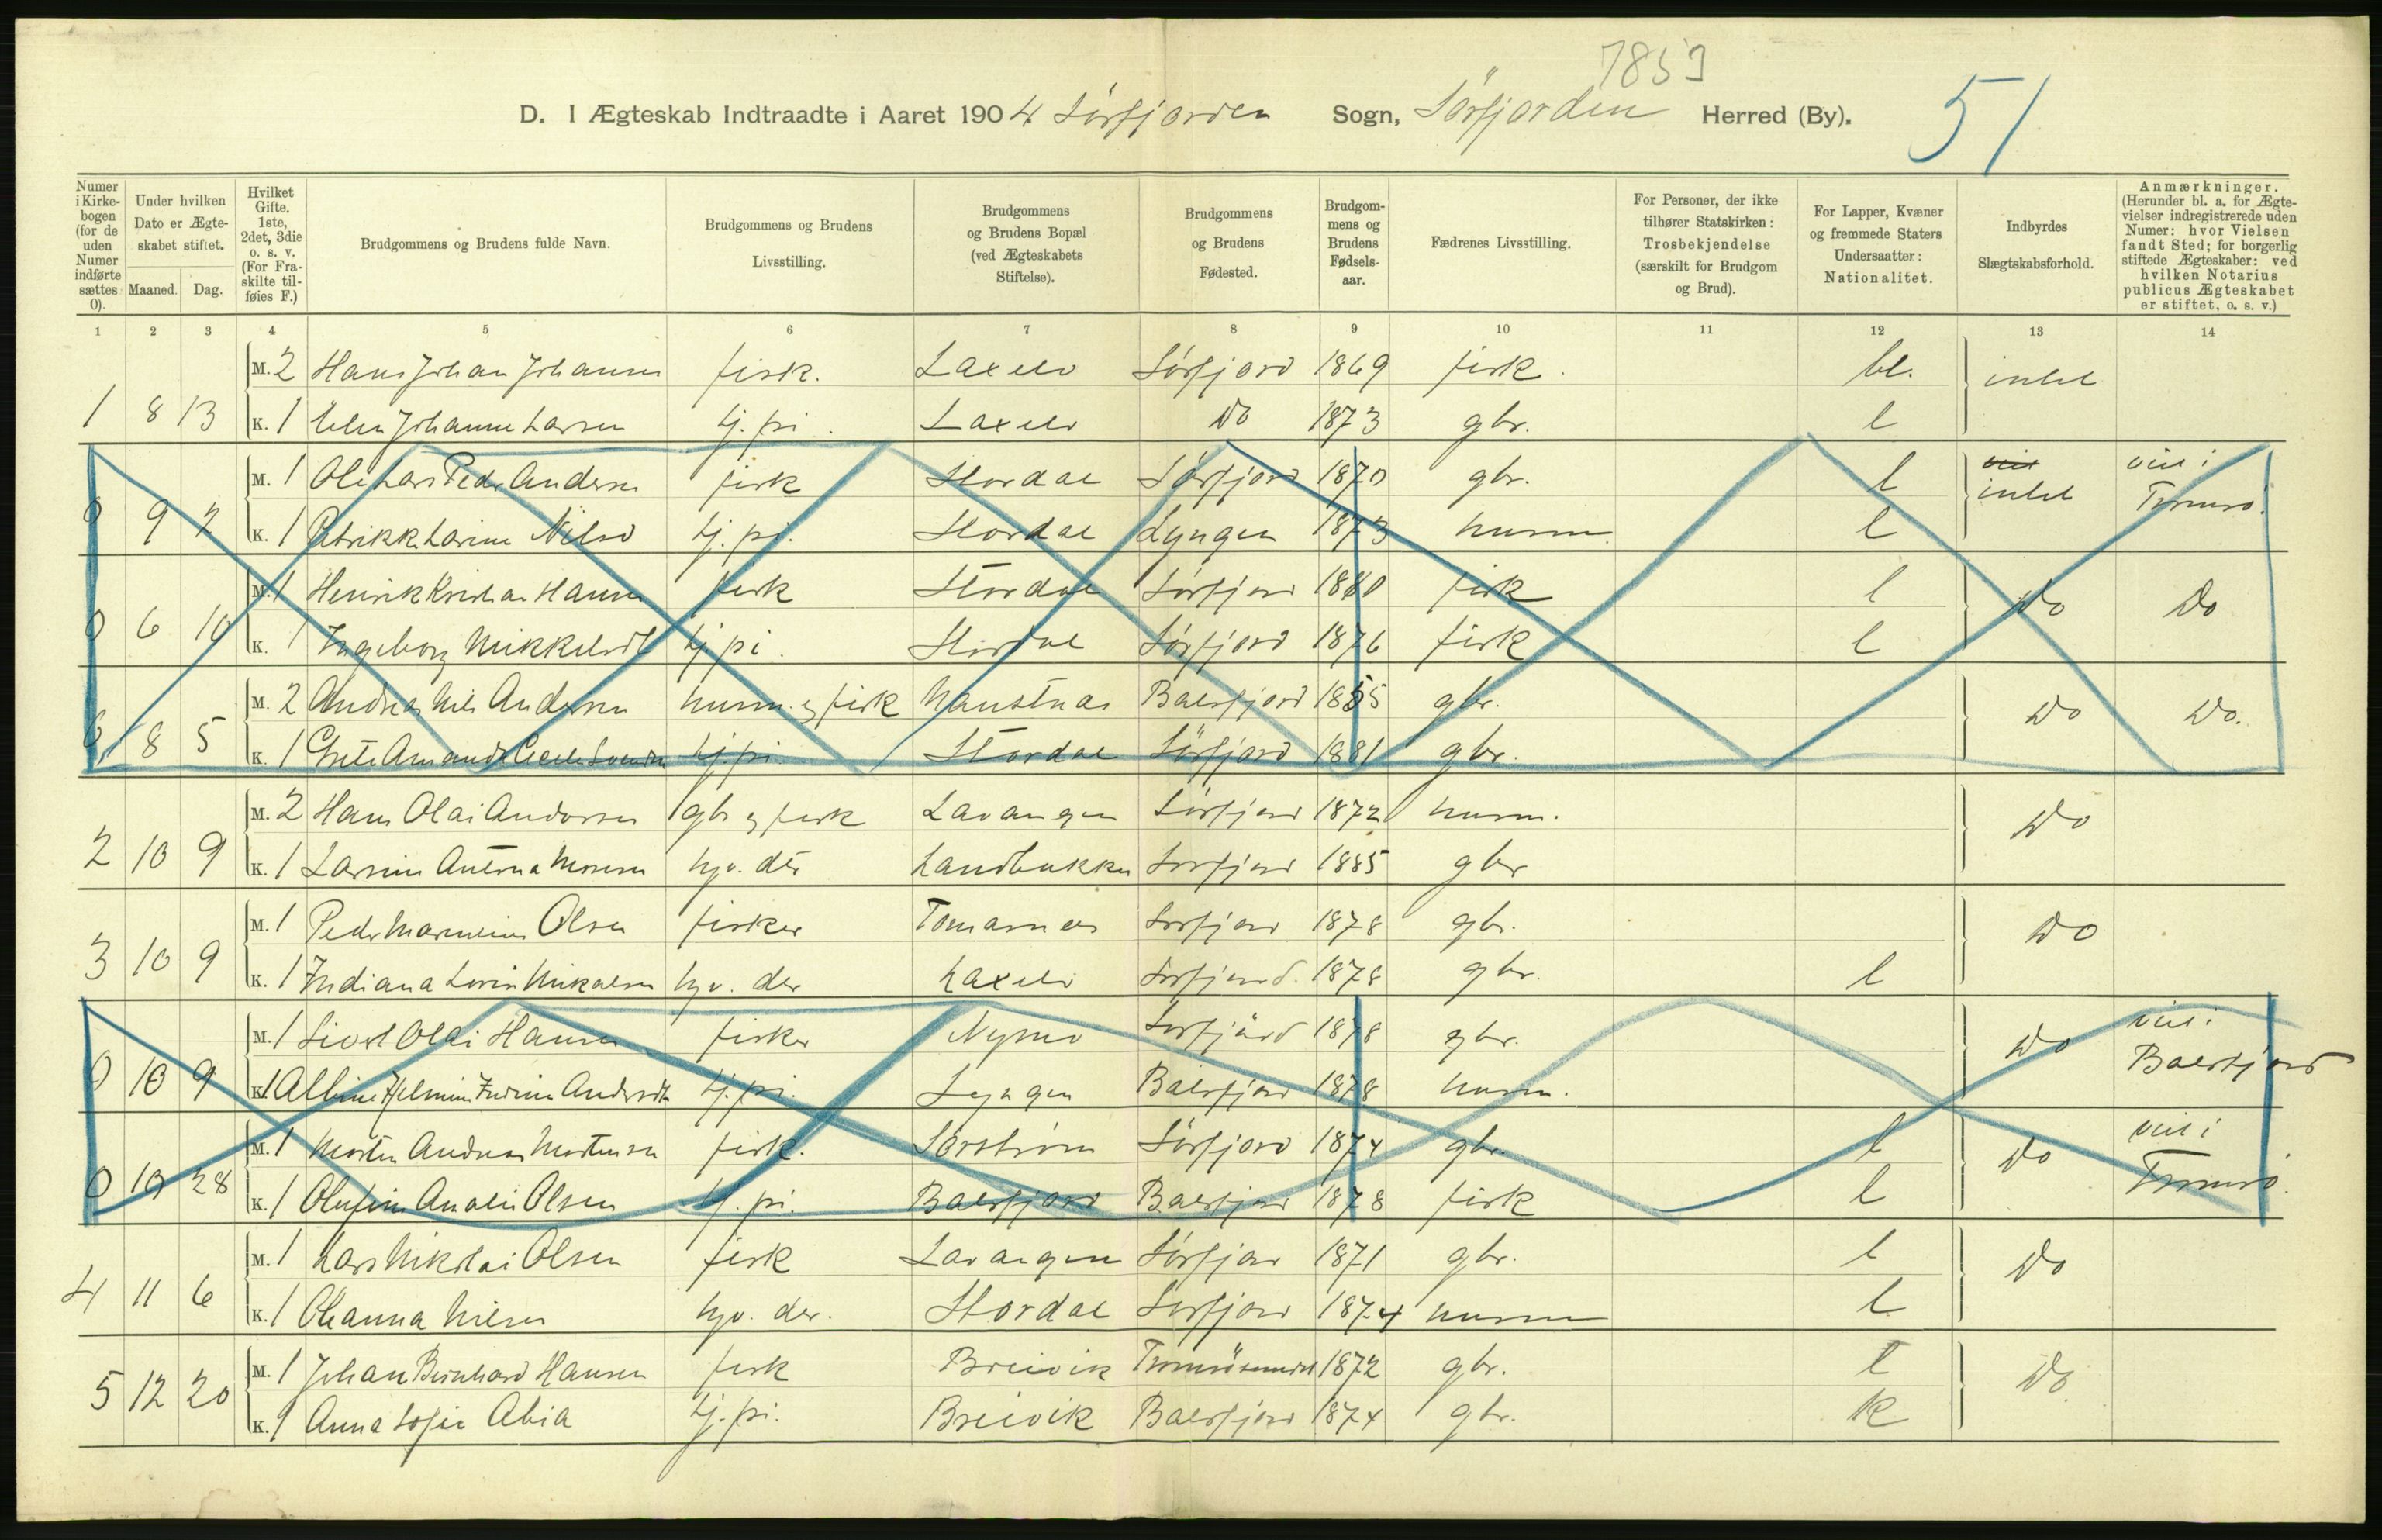 7853
51
D. I Ægteskab Indtraadte i Aaret 1904 Sørfjorden Sogn, Sørfjorden Herred (By).
Numer i Kirkebogen (for de uden Numer indførte sættes 0).
Under hvilken Dato er Ægteskabet stiftet.
Maaned. Dag.
Hvilket Gifte. 1ste, 2det, 3die o. s. v. (For Fraskilte tilføies F.)
Brudgommens og Brudens fulde Navn.
Brudgommens og Brudens Livsstilling.
Brudgommens og Brudens Bopæl (ved Ægteskabets Stiftelse).
Brudgommens og Brudens Fødested.
Brudgommens og Brudens Fødselsaar.
Fædrenes Livsstilling.
For Personer, der ikke tilhører Statskirken: Trosbekjendelse (særskilt for Brudgom og Brud).
For Lapper, Kvæner og fremmede Staters Undersaatter: Nationalitet.
Indbyrdes Slægtskabsforhold.
Anmærkninger. (Herunder bl. a. for Ægtevielser indregistrerede uden Numer: hvor Vielsen fandt Sted; for borgerlig stiftede Ægteskaber: ved hvilken Notarius publicus Ægteskabet er stiftet, o. s. v.)
1 2 3 4 5 6 7 8 9 10 11 12 13 14
M. 2 Hans Johan Johansen fisk. Laxelv Sørfjord 1869 fisk. bl. intet
1 8 13 K. 1 Elen Johanne Larsen tj. pi. Laxelv Do 1873 gbr. l
M. 1 Ole Lars Peder Andersen fisk Stordal Sørfjord 1870 gbr. l intet viet i Tromsø.
0 9 2 K. 1 Larine Nilsd tj. pi. Stordal Lyngen 1873 husm. l
M. 1 Henrik Kristian Hansen fisk Stordal Sørfjord 1880 fisk l Do Do
0 6 10 K. 1 Ingeborg Mikkelsdt tj. pi. Stordal Sørfjord 1876 fisk l
M. 2 Andreas Nils Andersen husm. og fisk Balsfjord 1855 gbr. Do Do.
0 8 5 K. 1 Grete Amanda Cecilie tj. pi. Stordal Sørfjord 1881 gbr.
M. 2 Hans Olai Andersen gbr og fisk Lavangen Sørfjord 1872 husm. Do
2 10 9 K. 1 Larsine Antona hjv. der Sørfjord 1885 gbr
M. 1 Peder Olsen fisker Tomasnes Sørfjord 1878 gbr. Do
3 10 9 K. 1 Indiana Mikalsen hjv. der Laxelv Sørfjord. 1878 gbr. l
M. 1 Sivert Olai Hansen fisker Nymo Sørfjord 1878 gbr. Do viet i Balsfjord
0 10 9 K. 1 Albine Hjelmine tj. pi. Lyngen Balsfjord 1878 husm.
M. 1 Morten Andreas Mortensen fisk. Sørstrøm Sørfjord 1874 gbr. l Do viet i Tromsø.
0 10 28 K. 1 Olufine Olsen tj. pi. Balsfjord Balsfjord 1878 fisk l
M. 1 Lars Nikolai Olsen fisk Lavangen Sørfjord 1871 gbr. l Do
4 11 6 K. 1 Oleanna Nilsen hjv. der. Stordal Sørfjord 1874 husm l
M. 1 Johan Bernhard Hansen fisk Breivik Tromsøsundet 1872 gbr. l Do
5 12 20 K. 1 Anna Sofie Abia tj. pi. Breivik Balsfjord 1874 gbr. K